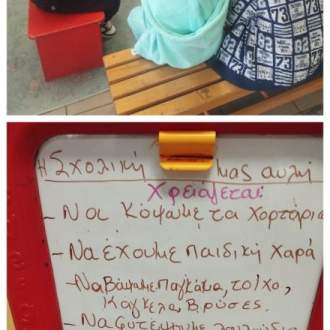 Η Σχολική μας αυλή
Χρειάζεται:
- Να κόψουμε τα χορτάρια
- Να έχουμε παιδική χαρά
- Να βάψουμε παγκάκια, τοίχο,
κάγκελα, βρύσες.
- Να φυτέψουμε λουλούδια